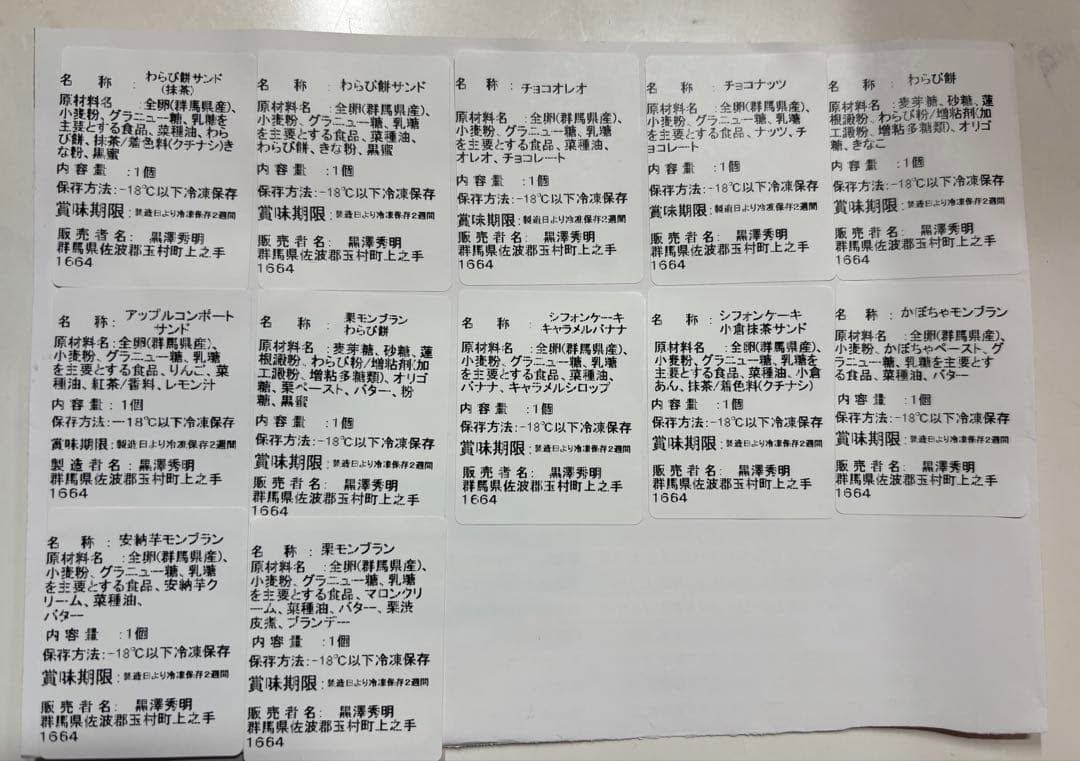 名 称 : わらび餅サンド
(抹茶)
原材料名 :全卵(群馬県産)、
小麦粉、グラニュー糖、乳糖を
主要とする食品、菜種油、わら
び餅、抹茶/着色料(クチナシ)き
な粉、黒蜜
内容量 :1個
保存方法:-18℃以下冷凍保存
賞味期限:製造日より冷凍保存2週間
販売者名: 黒澤秀明
群馬県佐波郡玉村町上之手
1664
名 称 : わらび餅サンド
原材料名 :全卵(群馬県産)、
小麦粉、グラニュー糖、乳糖
を主要とする食品、菜種油、
わらび餅、きな粉、黒蜜
内容量 :1個
保存方法:-18℃以下冷凍保存
賞味期限:製造日より冷凍保存2週間
販売者名: 黒澤秀明
群馬県佐波郡玉村町上之手
1664
名 称 : チョコオレオ
原材料名 :全卵(群馬県産)、
小麦粉、グラニュー糖、乳糖
を主要とする食品、菜種油、
オレオ、チョコレート
内容量 :1個
保存方法:-18℃以下冷凍保存
賞味期限:製造日より冷凍保存2週間
販売者名: 黒澤秀明
群馬県佐波郡玉村町上之手
1664
名 称 : チョコナッツ
原材料名 :全卵(群馬県産)、
小麦粉、グラニュー糖、乳糖
を主要とする食品、ナッツ、チ
ョコレート
内容量 :1個
保存方法:-18℃以下冷凍保存
賞味期限:製造日より冷凍保存2週間
販売者名: 黒澤秀明
群馬県佐波郡玉村町上之手
1664
名 称 : わらび餅
原材料名 :麦芽糖、砂糖、蓮
根澱粉、わらび粉/増粘剤(加
工澱粉、増粘多糖類)、オリゴ
糖、きなこ
内容量 :1個
保存方法:-18℃以下冷凍保存
賞味期限:製造日より冷凍保存2週間
販売者名: 黒澤秀明
群馬県佐波郡玉村町上之手
1664
名 称 : アップルコンポート
サンド
原材料名 :全卵(群馬県産)、
小麦粉、グラニュー糖、乳糖
を主要とする食品、りんご、菜
種油、紅茶/香料、レモン汁
内容量 :1個
保存方法:-18℃以下冷凍保存
賞味期限:製造日より冷凍保存2週間
製造者名: 黒澤秀明
群馬県佐波郡玉村町上之手
1664
名 称 : 栗モンブラン
わらび餅
原材料名 :麦芽糖、砂糖、蓮
根澱粉、わらび粉/増粘剤(加
工澱粉、増粘多糖類)、オリゴ
糖、栗ペースト、バター、粉
糖、黒蜜
内容量 :1個
保存方法:-18℃以下冷凍保存
賞味期限:製造日より冷凍保存2週間
販売者名: 黒澤秀明
群馬県佐波郡玉村町上之手
1664
名 称 : シフォンケーキ
キャラメルバナナ
原材料名 :全卵(群馬県産)、
小麦粉、グラニュー糖、乳糖
を主要とする食品、菜種油、
バナナ、キャラメルシロップ
内容量 :1個
保存方法:-18℃以下冷凍保存
賞味期限:製造日より冷凍保存2週間
販売者名: 黒澤秀明
群馬県佐波郡玉村町上之手
1664
名 称 : シフォンケーキ
小倉抹茶サンド
原材料名 :全卵(群馬県産)、
小麦粉、グラニュー糖、乳糖を
主要とする食品、菜種油、小倉
あん、抹茶/着色料(クチナシ)
内容量 :1個
保存方法:-18℃以下冷凍保存
賞味期限:製造日より冷凍保存2週間
販売者名: 黒澤秀明
群馬県佐波郡玉村町上之手
1664
名 称 : かぼちゃモンブラン
原材料名 :全卵(群馬県産)、
小麦粉、かぼちゃペースト、グ
ラニュー糖、乳糖を主要とす
る食品、菜種油、バター
内容量 :1個
保存方法:-18℃以下冷凍保存
賞味期限:製造日より冷凍保存2週間
販売者名: 黒澤秀明
群馬県佐波郡玉村町上之手
1664
名 称 : 安納芋モンブラン
原材料名 :全卵(群馬県産)、
小麦粉、グラニュー糖、乳糖
を主要とする食品、安納芋ク
リーム、菜種油、
バター
内容量 :1個
保存方法:-18℃以下冷凍保存
賞味期限:製造日より冷凍保存2週間
販売者名: 黒澤秀明
群馬県佐波郡玉村町上之手
1664
名 称 : 栗モンブラン
原材料名 :全卵(群馬県産)、
小麦粉、グラニュー糖、乳糖
を主要とする食品、マロンクリ
ーム、菜種油、バター、栗渋
皮煮、ブランデー
内容量 :1個
保存方法:-18℃以下冷凍保存
賞味期限:製造日より冷凍保存2週間
販売者名: 黒澤秀明
群馬県佐波郡玉村町上之手
1664